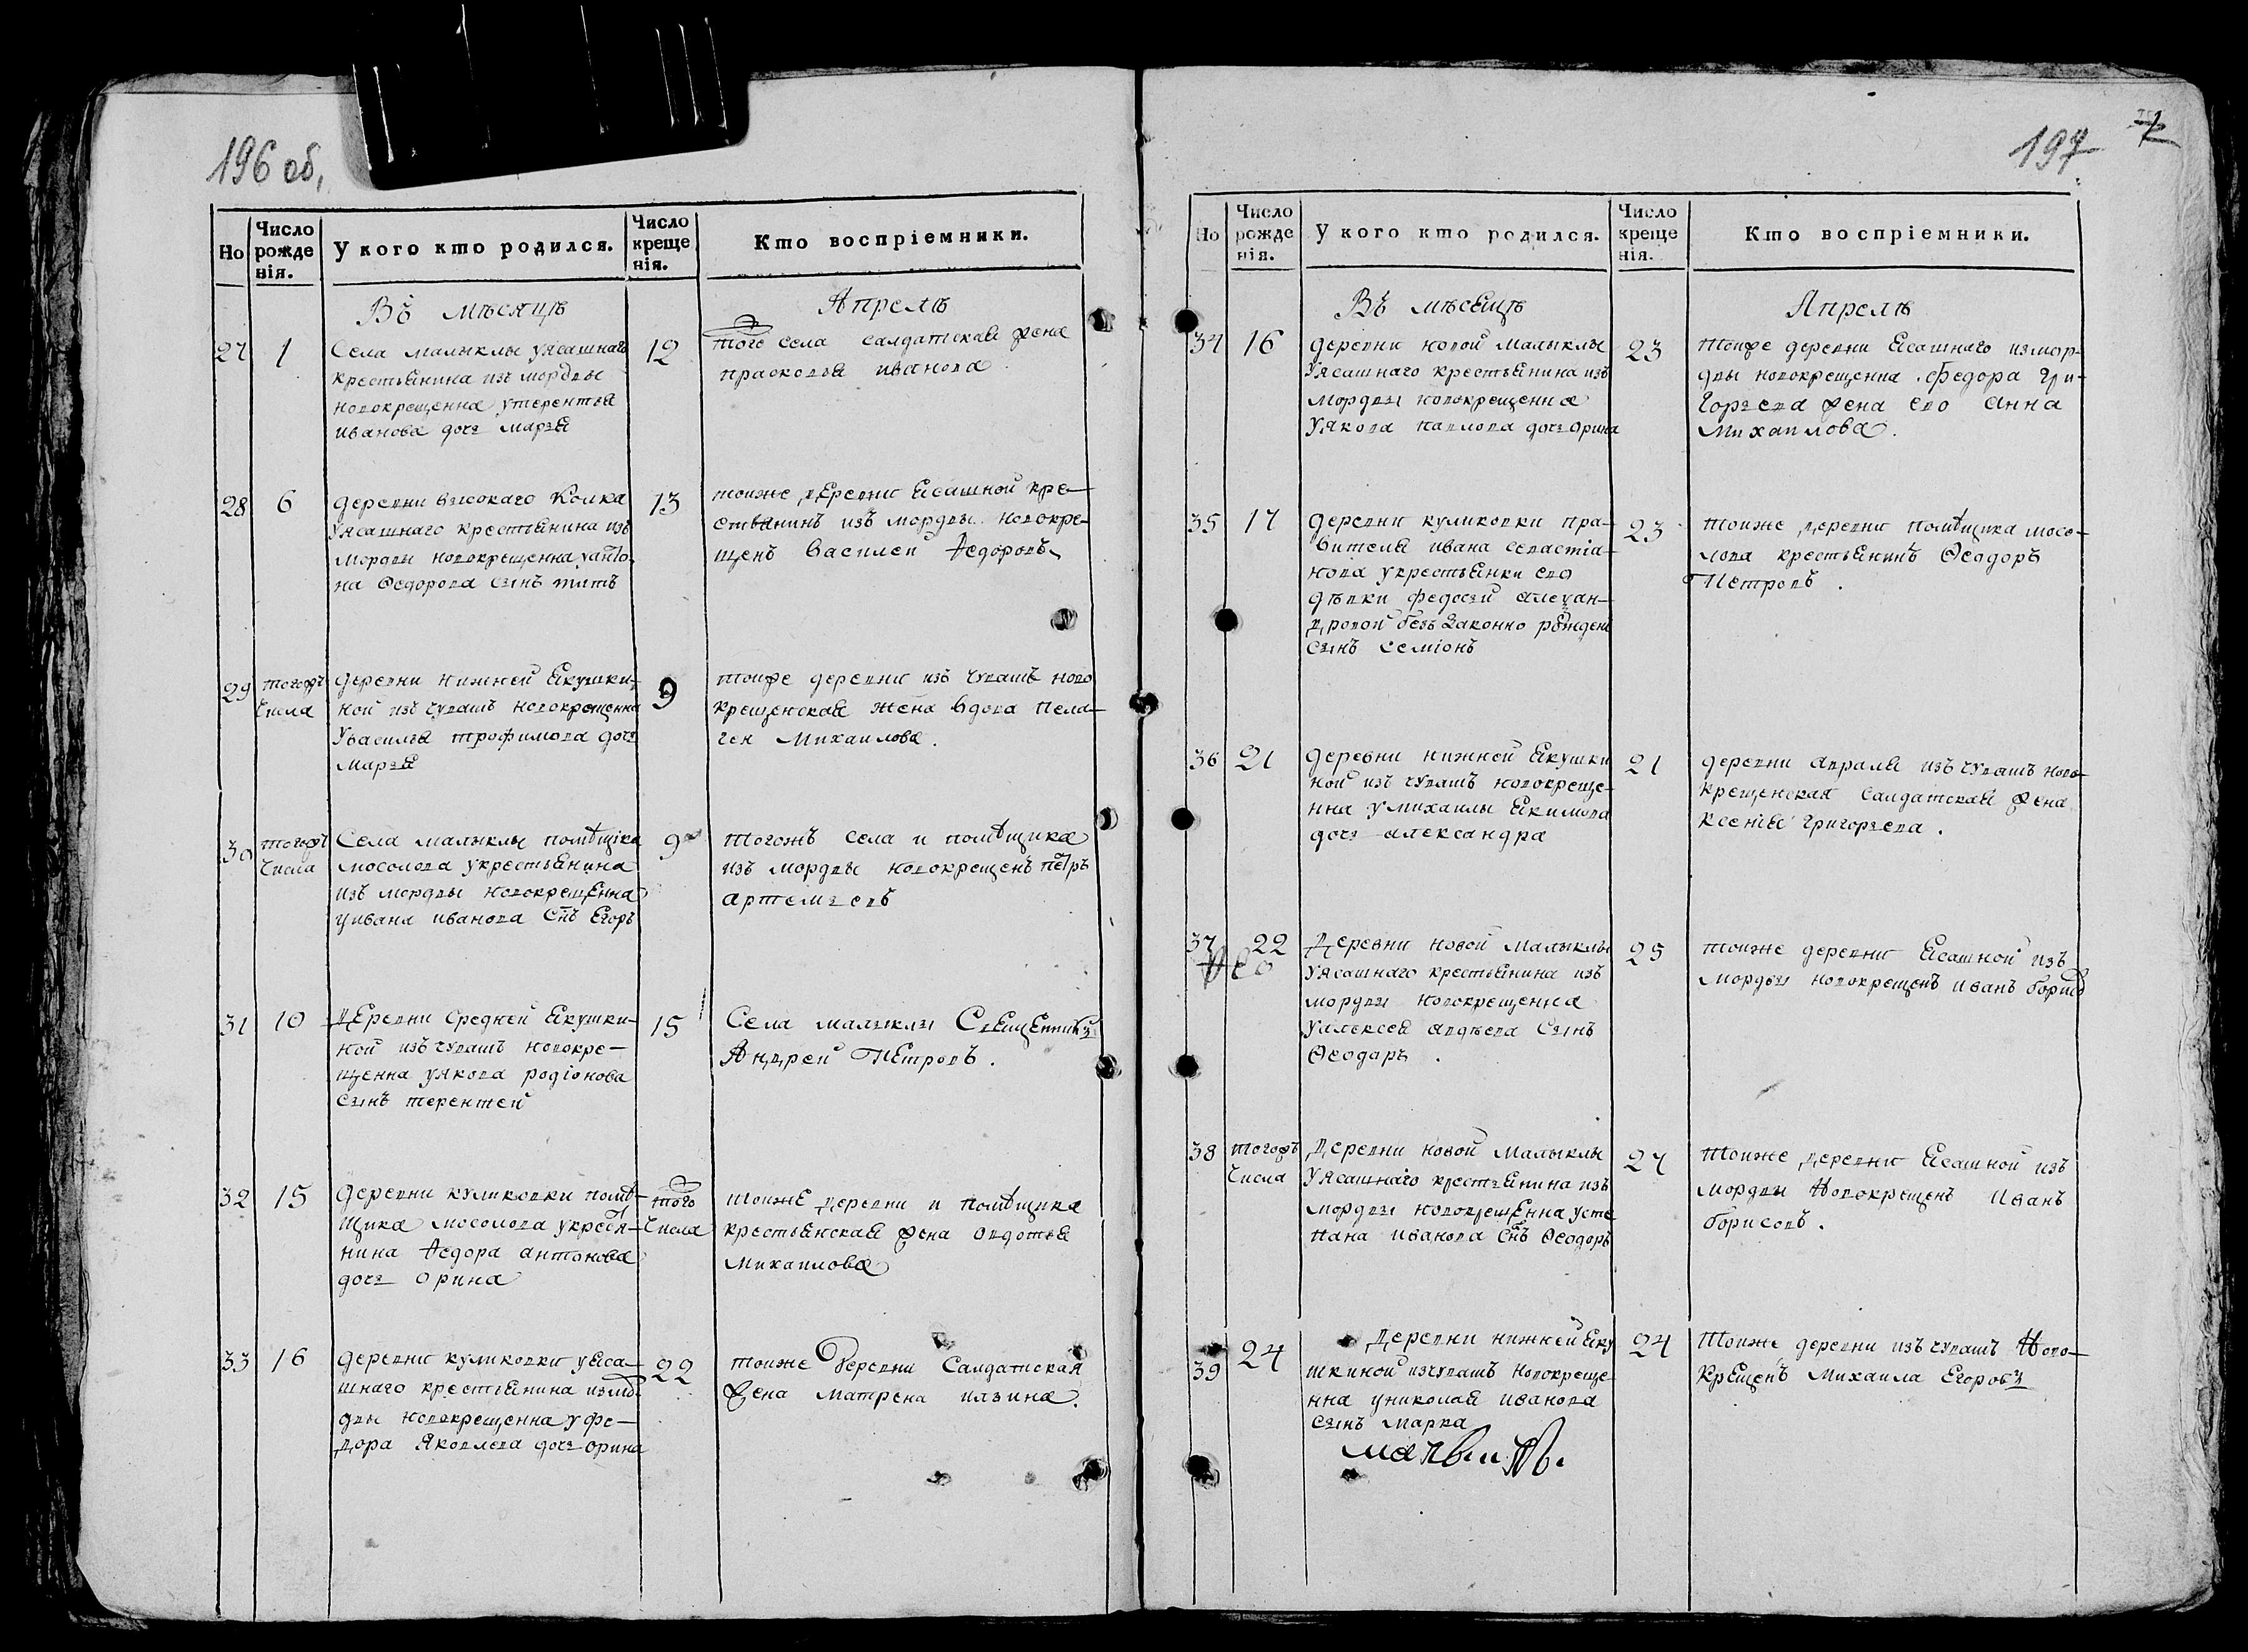 196 об.
Но
Число рожде нія.
У кого кто родился.
Число креще нія.
Кто воспріемники.
Въ мѣсяцѣ
Апрелѣ
27
1
Села малыклы уясашнаго
крестьянина изъ мордвы
новокрещенна утерентья
иванова дочь марья
12
того села салдатская жена
прасковья иванова
28
6
деревни высокаго Колка
уясашнаго крестьянина изъ
мордвы новокрещенна уанто
на Ѳедорова сынъ титъ
13
тоиже деревни ясашной кре-
стьянинъ изъ мордвы новокре-
щенъ василеи Ѳедоровъ
29
тогожъ
числа
деревни нижней якушки-
ной изъ чувашъ новокрещенна
Увасилья трофимова дочь
марья
9
тоиже деревни изъ чувашъ ново
крещенская жена вдова пела-
гея Михаилова.
30
тогожъ
числа
Села малыклы помѣщика
мосолова укрестьянина
изъ мордвы новокрещенна
уивана иванова снъ Егоръ
9
тогожъ села и помѣщика
изъ мордвы новокрещенъ петръ
артемьевъ
31
10
деревни средней якушки-
ной изъ чувашъ новокре-
щенна уякова родіонова
сынъ терентей
15
Села малыклы Священникъ
Андрей Петровъ.
32
15
деревни куликовки помѣ-
щика мосолова укрестья-
нина Ѳедора антонова
дочь орина
того
числа
тоиже деревни и помѣщика
крестьянская жена овдотья
михаилова
33
16
деревни куликовки уяса-
шнаго крестьянина измо
двы новокрещенна уфе-
дора Яковлева дочь орина
22
тоиже деревни Салдатская
жена матрена ильина.
197
Но
Число рожде нія.
У кого кто родился.
Число креще нія.
Кто воспріемники.
Въ мѣсецѣ
Апрелѣ
34
16
деревни новой малыклы
уясашнаго крестьянина изъ
мордвы новокрещенна
Уякова павлова дочь орина
23
тоиже деревни ясашнаго измор-
двы новокрещенна федора гри-
горьева жена ево анна
Михаилова.
35
17
деревни куликовки пра-
вителя ивана севастіа-
нова укрестьянки ево
дѣвки федосьи алексан-
дровой безъ законно рожден
сынъ семіонъ
23
тоиже деревни помѣщика мосо-
лова крестьянинъ Ѳеодоръ
Петровъ.
36
21
деревни нижней якушки
ной изъ чувашъ новокреще-
нна умихаилы якимова
дочь александра
21
деревни авраля изъ чувашъ ново-
крещенская салдатская жена
ксенія григорьева.
37
22
Деревни новой малыклы
уясашнаго крестьянина изъ
мордвы новокрещенна
уалексея авдѣева Сынъ
Ѳеодаръ.
25
тоиже деревни ясашной изъ
мордвы новокрещенъ иванъ борисо
38
тогожъ
числа
Деревни новой малыклы
Уясашнаго крестьянина изъ
мордвы новокрещенна усте
пана иванова снъ Ѳеодоръ
27
Тоиже деревни ясашной изъ
мордвы Новокрещенъ Иванъ
борисовъ.
39
24
Деревни нижней яку
шкиной изчувашъ новокреще-
нна униколая иванова
сынъ марка
24
Тоиже деревни изъ чувашъ Ново-
крещенъ Михаила Егоровъ